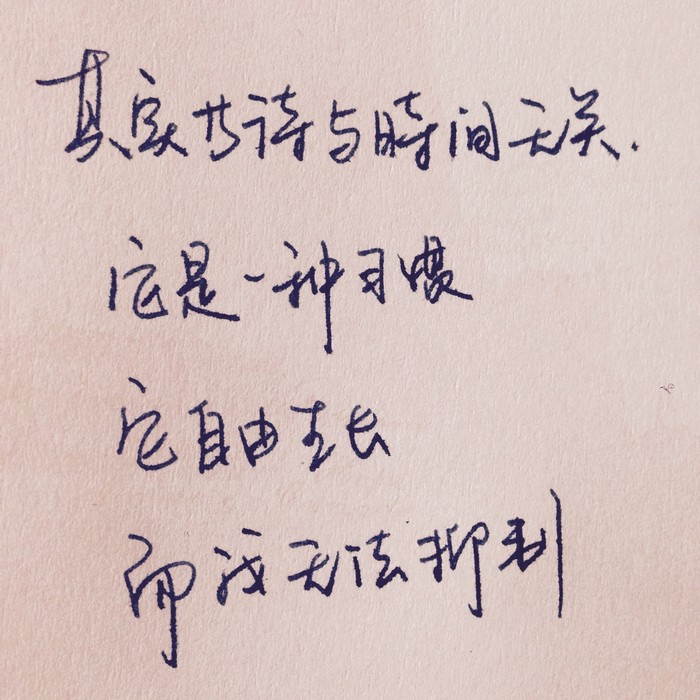 其实等待与時间无关.
它是一种习惯
它自由生长
而我无法抑制